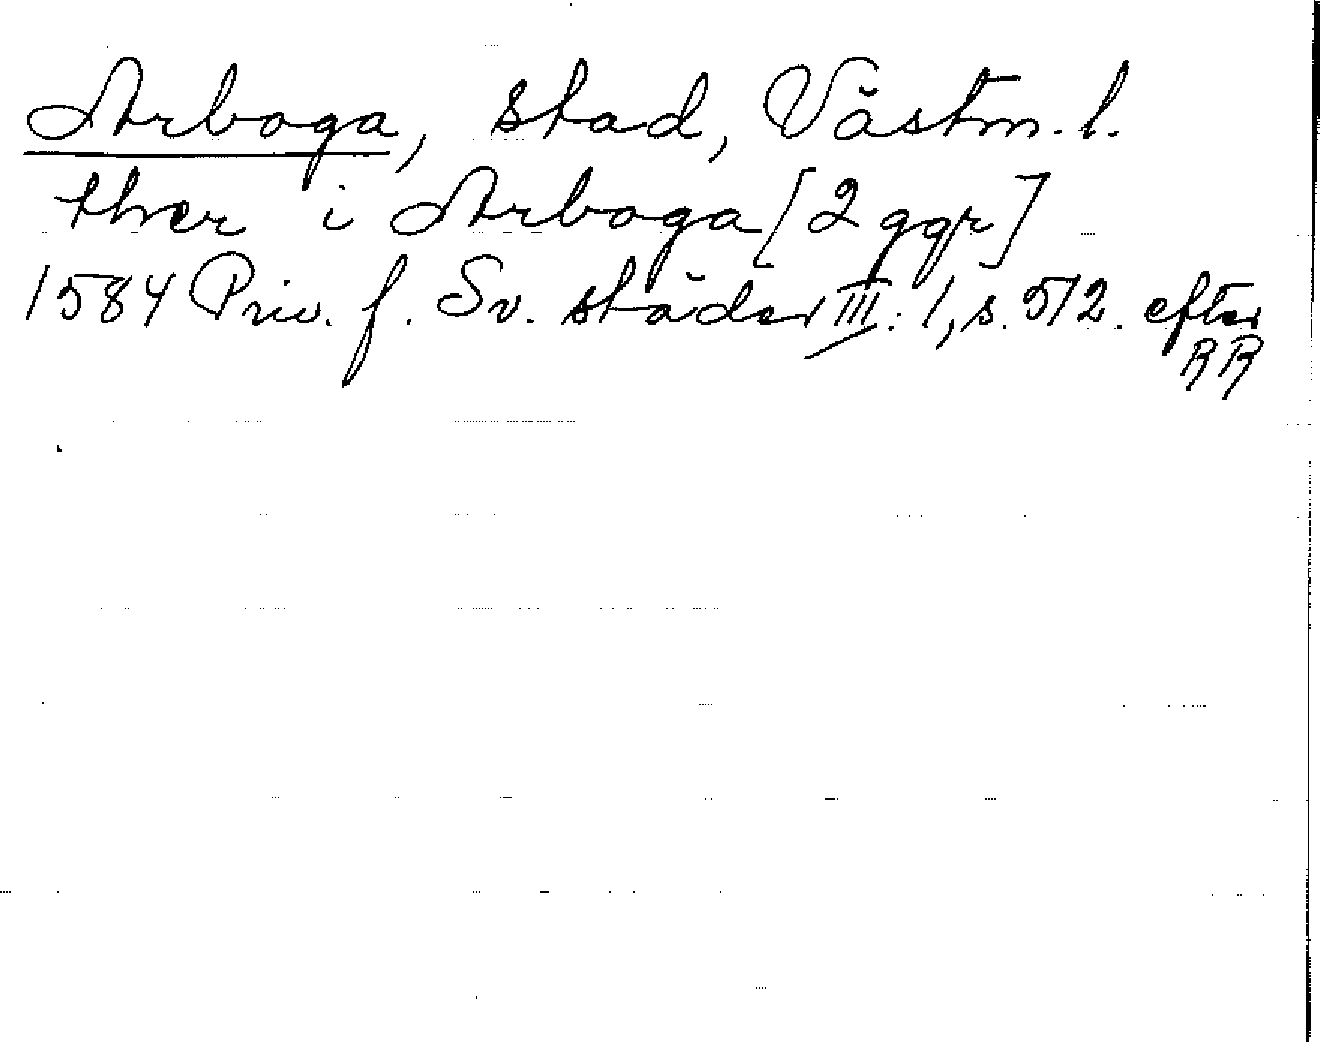 Arboga, stad, Västm. l.
ther i Arboga [2 ggr]
1584 Priv. f. Sv. städer III: 1, s. 512. efter
RR